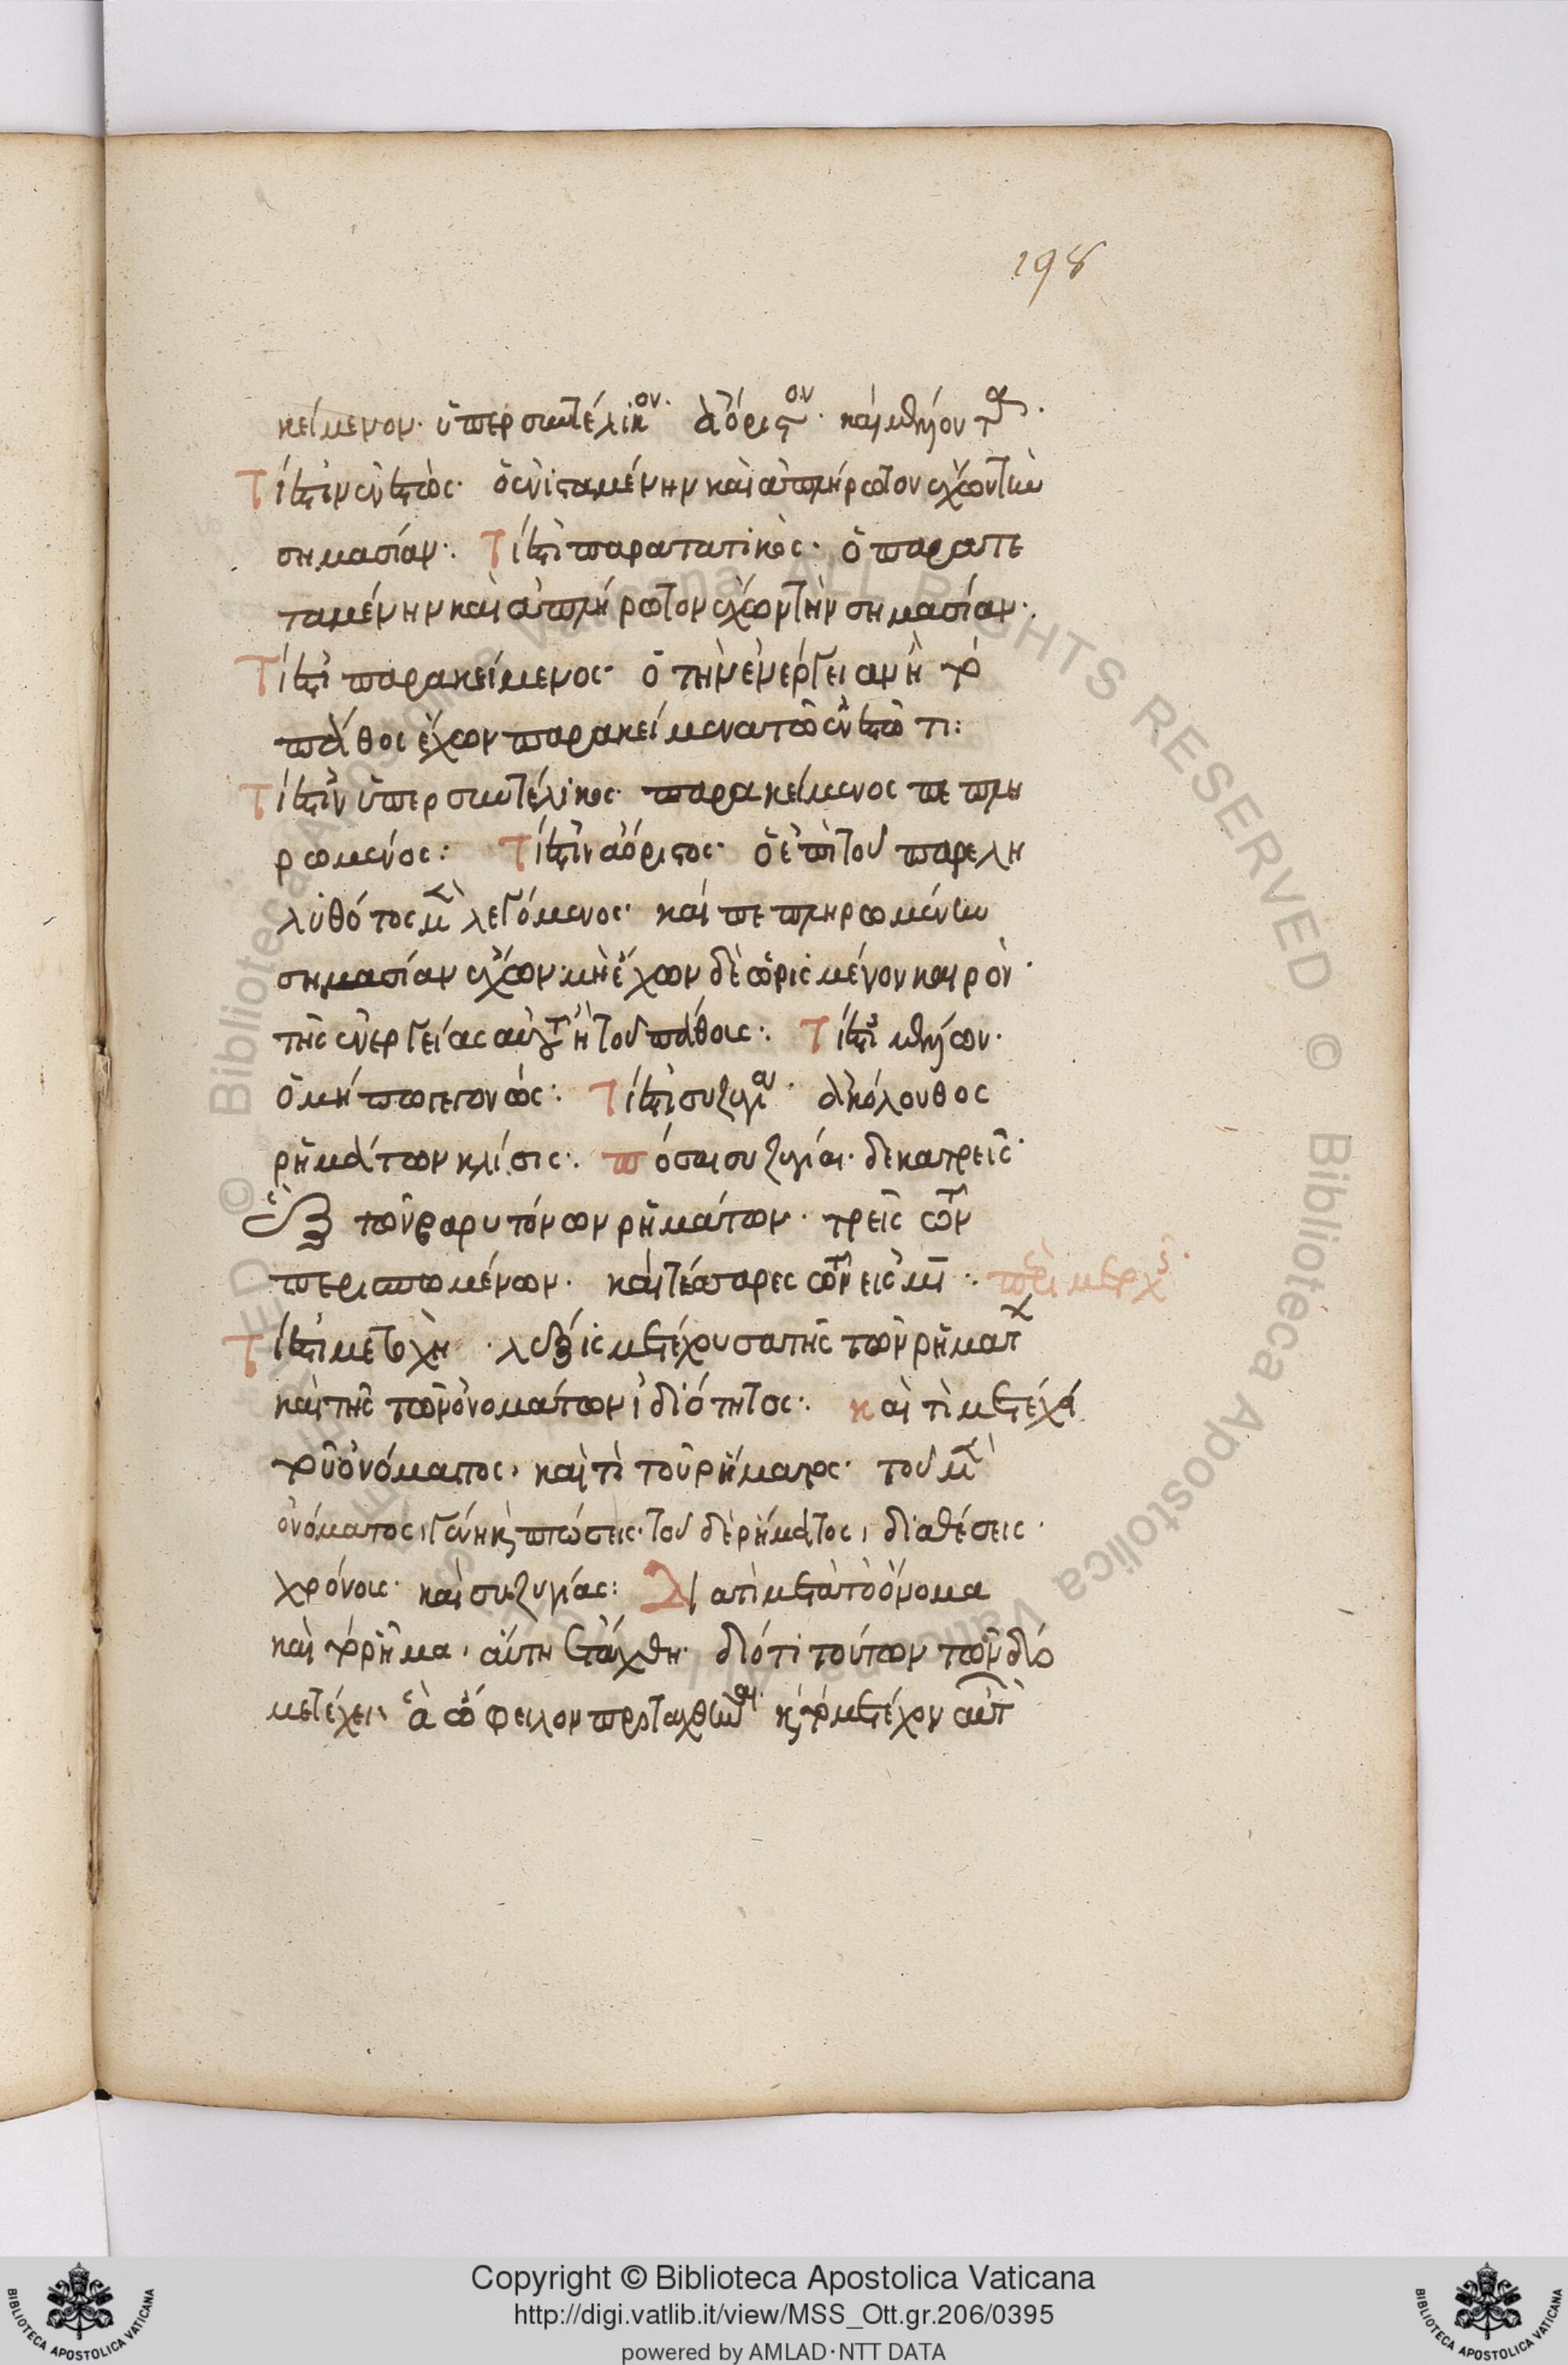 198
κείμενον· ὑπερσυντέλικον· ἀόριστον· καὶ μέλλοντα·
Τί ἐστιν ἐνεστὼς· ὁ ἐνισταμένην καὶ ἀπλήρωτον ἔχων τὴν
σημασίαν:· Τί ἐστὶ παρατατικὸς· ὁ παρατε
ταμένην καὶ ἀπλήρωτον ἔχων τὴν σημασίαν·
Τί ἐστὶ παρακείμενος· ὁ τὴν ἐνέργειαν ἢ τὸ
πάθος ἔχων παρακείμενα τῶ ἐνεστῶτι:
Τί ἐστὶν ὑπερσυντέλικος· παρακείμενος πεπλη
ρωμένος: Τί ἐστὶν ἀόριστος· ὁ ἐπὶ τοῦ παρελη
λυθότος μὲν λεγόμενος· καὶ πεπληρωμένην
σημασίαν ἔχων· μὴ ἔχων δὲ ὡρισμένον καιρὸν·
τῆς ἐνεργείας αὐτῆς ἢ τοῦ πάθους:· Τί ἐστὶ μέλλων·
ὁ μήπω γεγονώς: Τί ἐστὶ συζυγία· ἀκόλουθος
ῥημάτων κλίσις:· πόσαι συζυγίαι· δεκατρεῖς·
ἓξ τῶν βαρυτόνων ῥημάτων· τρεῖς τῶν
περισπωμένων· καὶ τέσσαρες τῶν εἰς μι:· περὶ μετοχῆς·
Τί ἐστὶ μετοχὴ· λέξις μετέχουσα τῆς τῶν ῥημάτων
καὶ τῆς τῶν ὀνομάτων ἰδιότητος:· καὶ τί μετέχει
τοῦ ὀνόματος, καὶ τί τοῦ ῥήματος· τοῦ μὲν
ὀνόματος, γένη καὶ πτώσεις· τοῦ δὲ ῥήματος, διαθέσεις·
χρόνους· καὶ συζυγίας: Διατί μετὰ τὸ ὄνομα
καὶ τὸ ῥῆμα, αὕτη ἐτάχθη· διότι τούτων τῶν δύο
μετέχει, ἃ ὤφειλον προταχθῆναι· καὶ τὸ μετέχον αὐτῶν
Copyright © Biblioteca Apostolica Vaticana
http://digi.vatlib.it/view/MSS_Ott.gr.206/0395
powered by AMLAD·NTT DATA
BIBLIOTECA APOSTOLICA VATICANA
BIBLIOTECA APOSTOLICA VATICANA